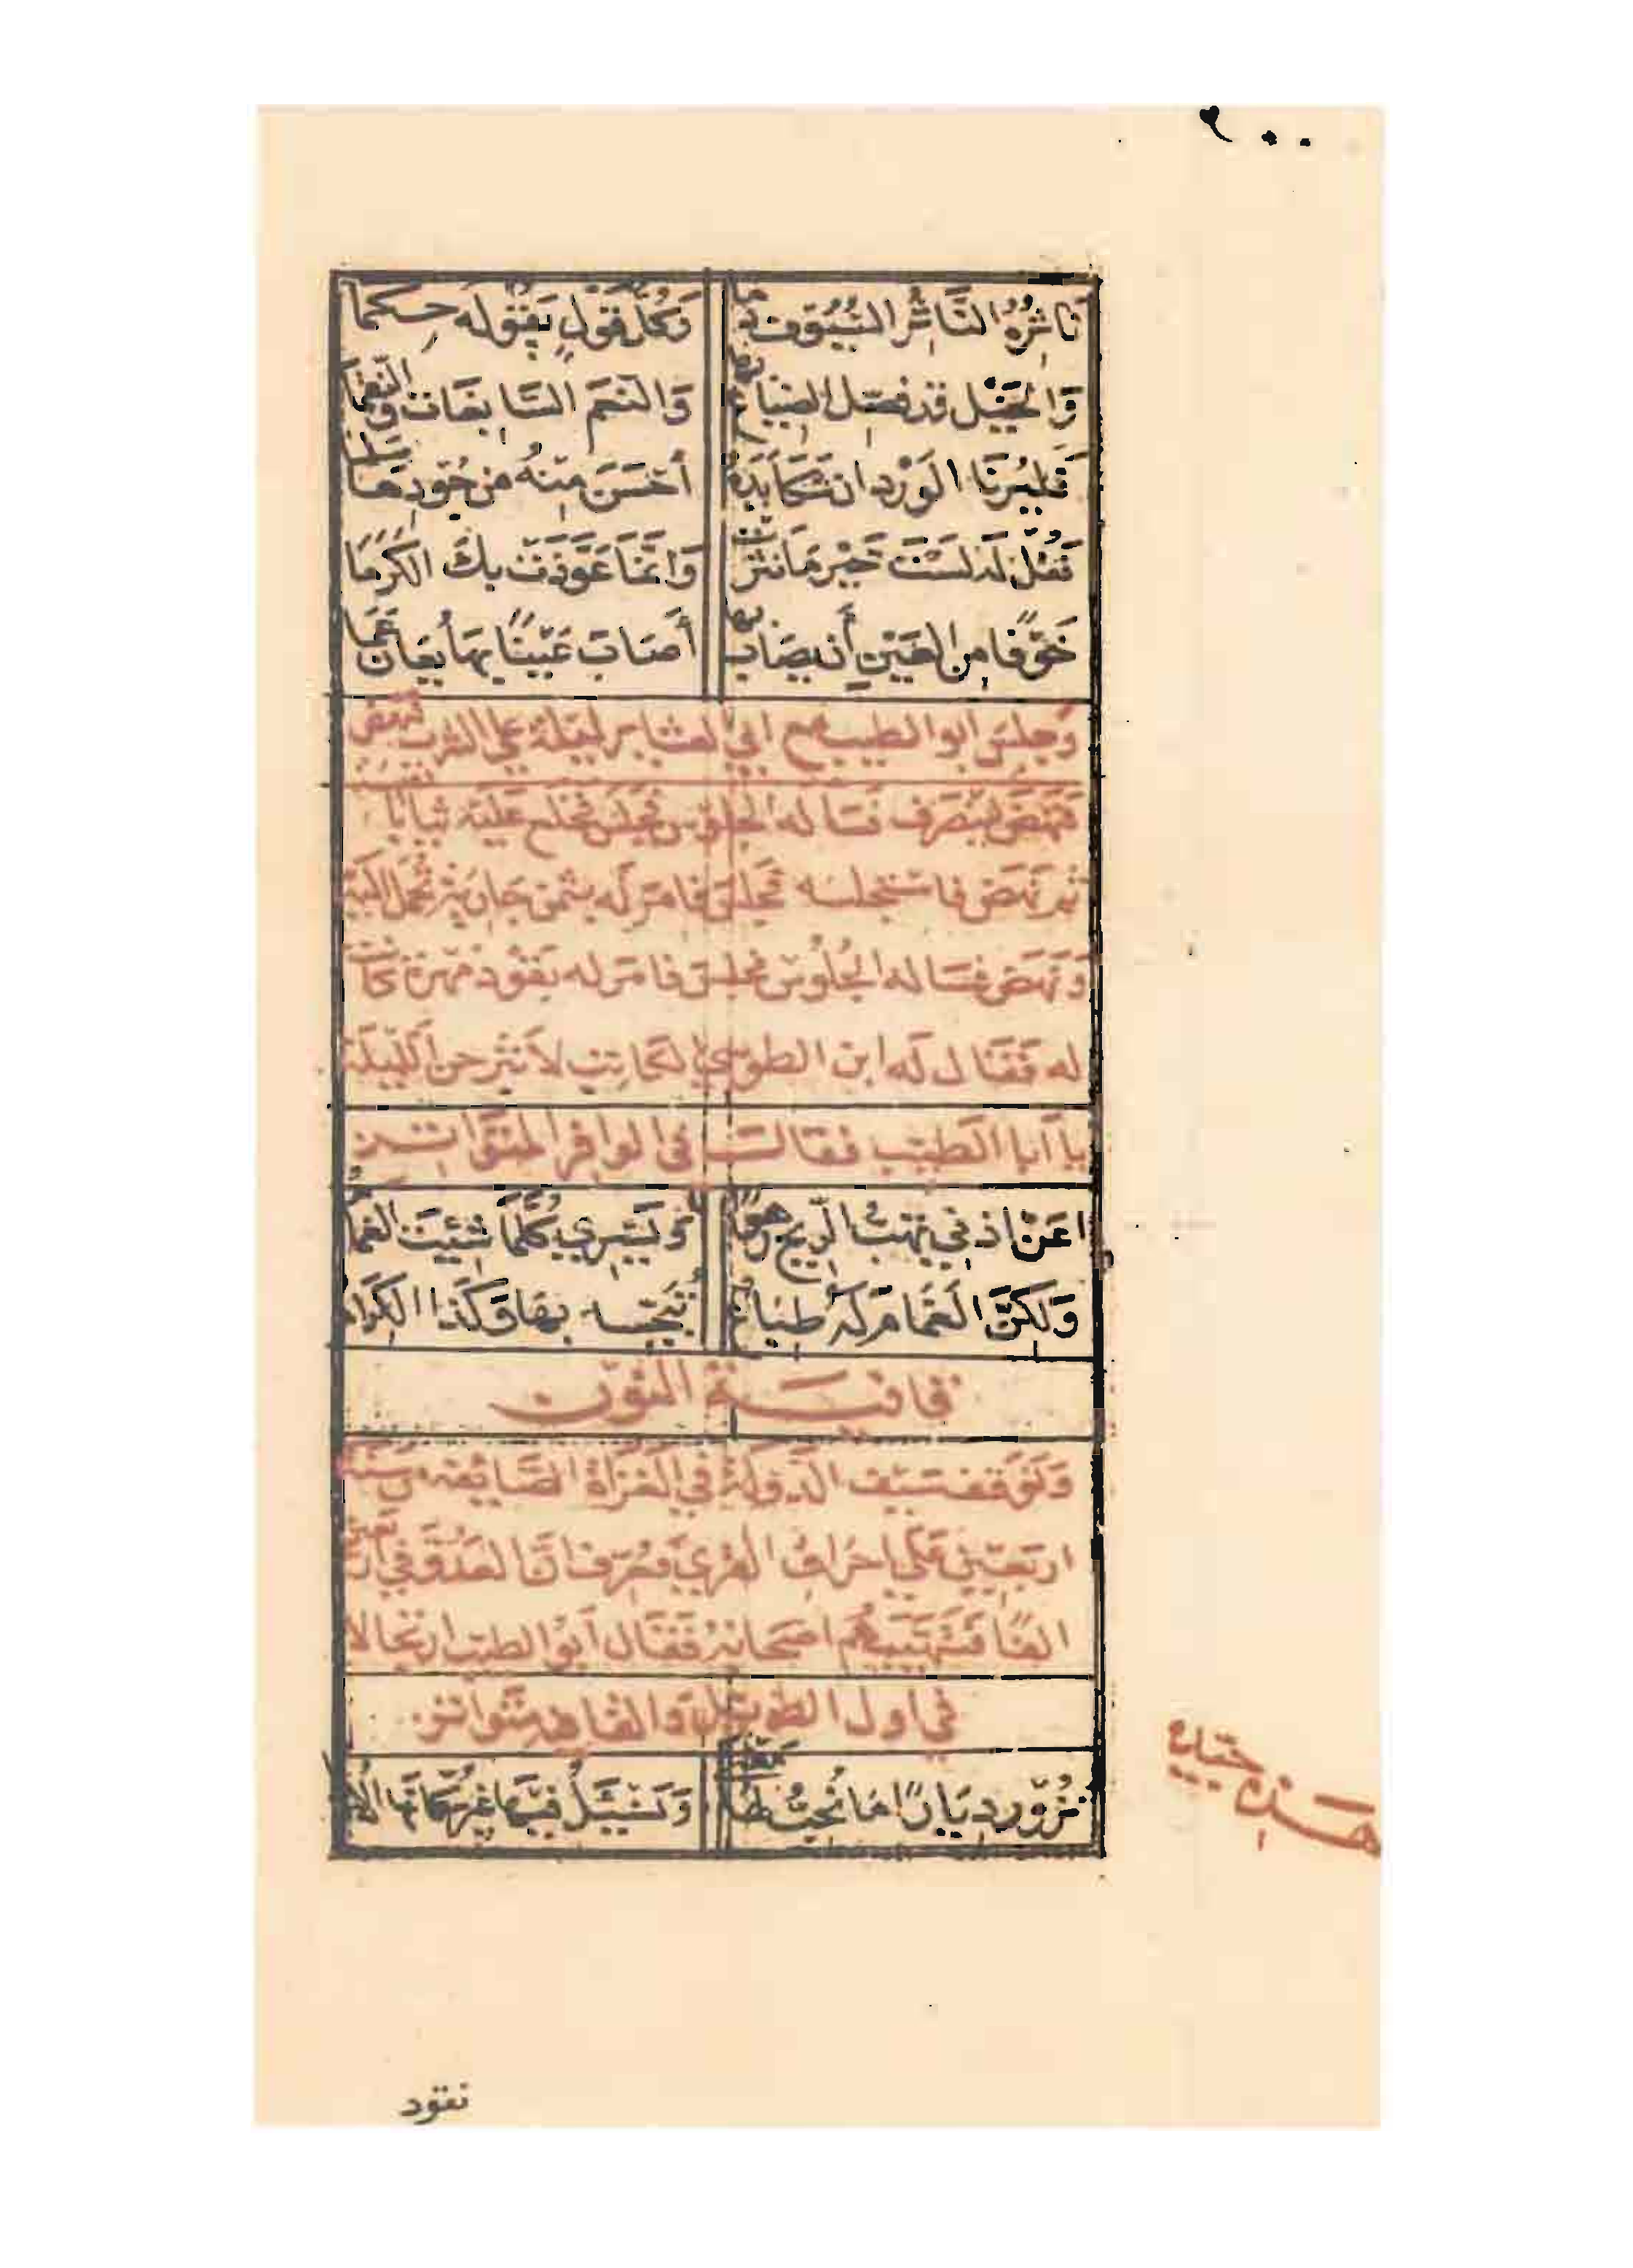 ٢٠٠
نَاثِرُهُ النَّاثِرُ السُّيُوفَ دَمًا وَكُلَّ قَوْلٍ يَقُولُه حِكَمَا
وَالخَيْل قد فصّل الضياع بها وَالنّعَم السَّابغَات وَالنّقما
فَليُرِنَا الوَرْد ان شَكَا يَدَهُ أَحْسَنَ مِنْهُ من جُودِهَا سَلما
فَقُلْ له لَسْتَ خَيْر مَا نَثَرَتْ وَانَّمَا عَوَّذَتْ بِكَ الكَرَمَا
خَوْفًا من العَيْنِ أَن يصَاب بها أَصَابَ عَيْنًا بِهَا يُعَان عَمَا
وَجلسَ ابو الطيب مع ابي العشاير ليلة على الشرب فنهض
فَنَهَضَ لينصرف فسَاله الجلوس فجلس فخلع عليه ثيابا
ثم نهض فاستجلسه فجلس فامر له بثمن جارية فحمل اليه
وَنَهَض فسَاله الجُلُوس فجلس فامر له بقَود مهرة كانت
له فَقَال له ابن الطوسي الكاتب لا تبرحن الليلة
يا أبا الطيّب فقالـــ في الوافر المتواتـــر
اعَنْ اذني تهبّ الرّيح هوًا وَيَسْرِي كُلَّمَا شِئت الغما
وَلكنَّ الغَمَام له طباع تبجّســـه بهَا وَكَذا الكرام
قافيــــة النون
وَتوقف سَيف الدّولة في الغَزَاة الصّايفه سنة
اربعين على احراق القرى وعرف ان العَدُوّ في اربعين
الفًا فتهيّبهم اصحابه فقال أبو الطيب ارتجالا
في اول الطويل والقافيه متواتر
نزور ديارًا مَا نُحِبّ لهَا مَغْنَى وَنَسْئَلُ فيها غير سُكّانها الاذ
نقود